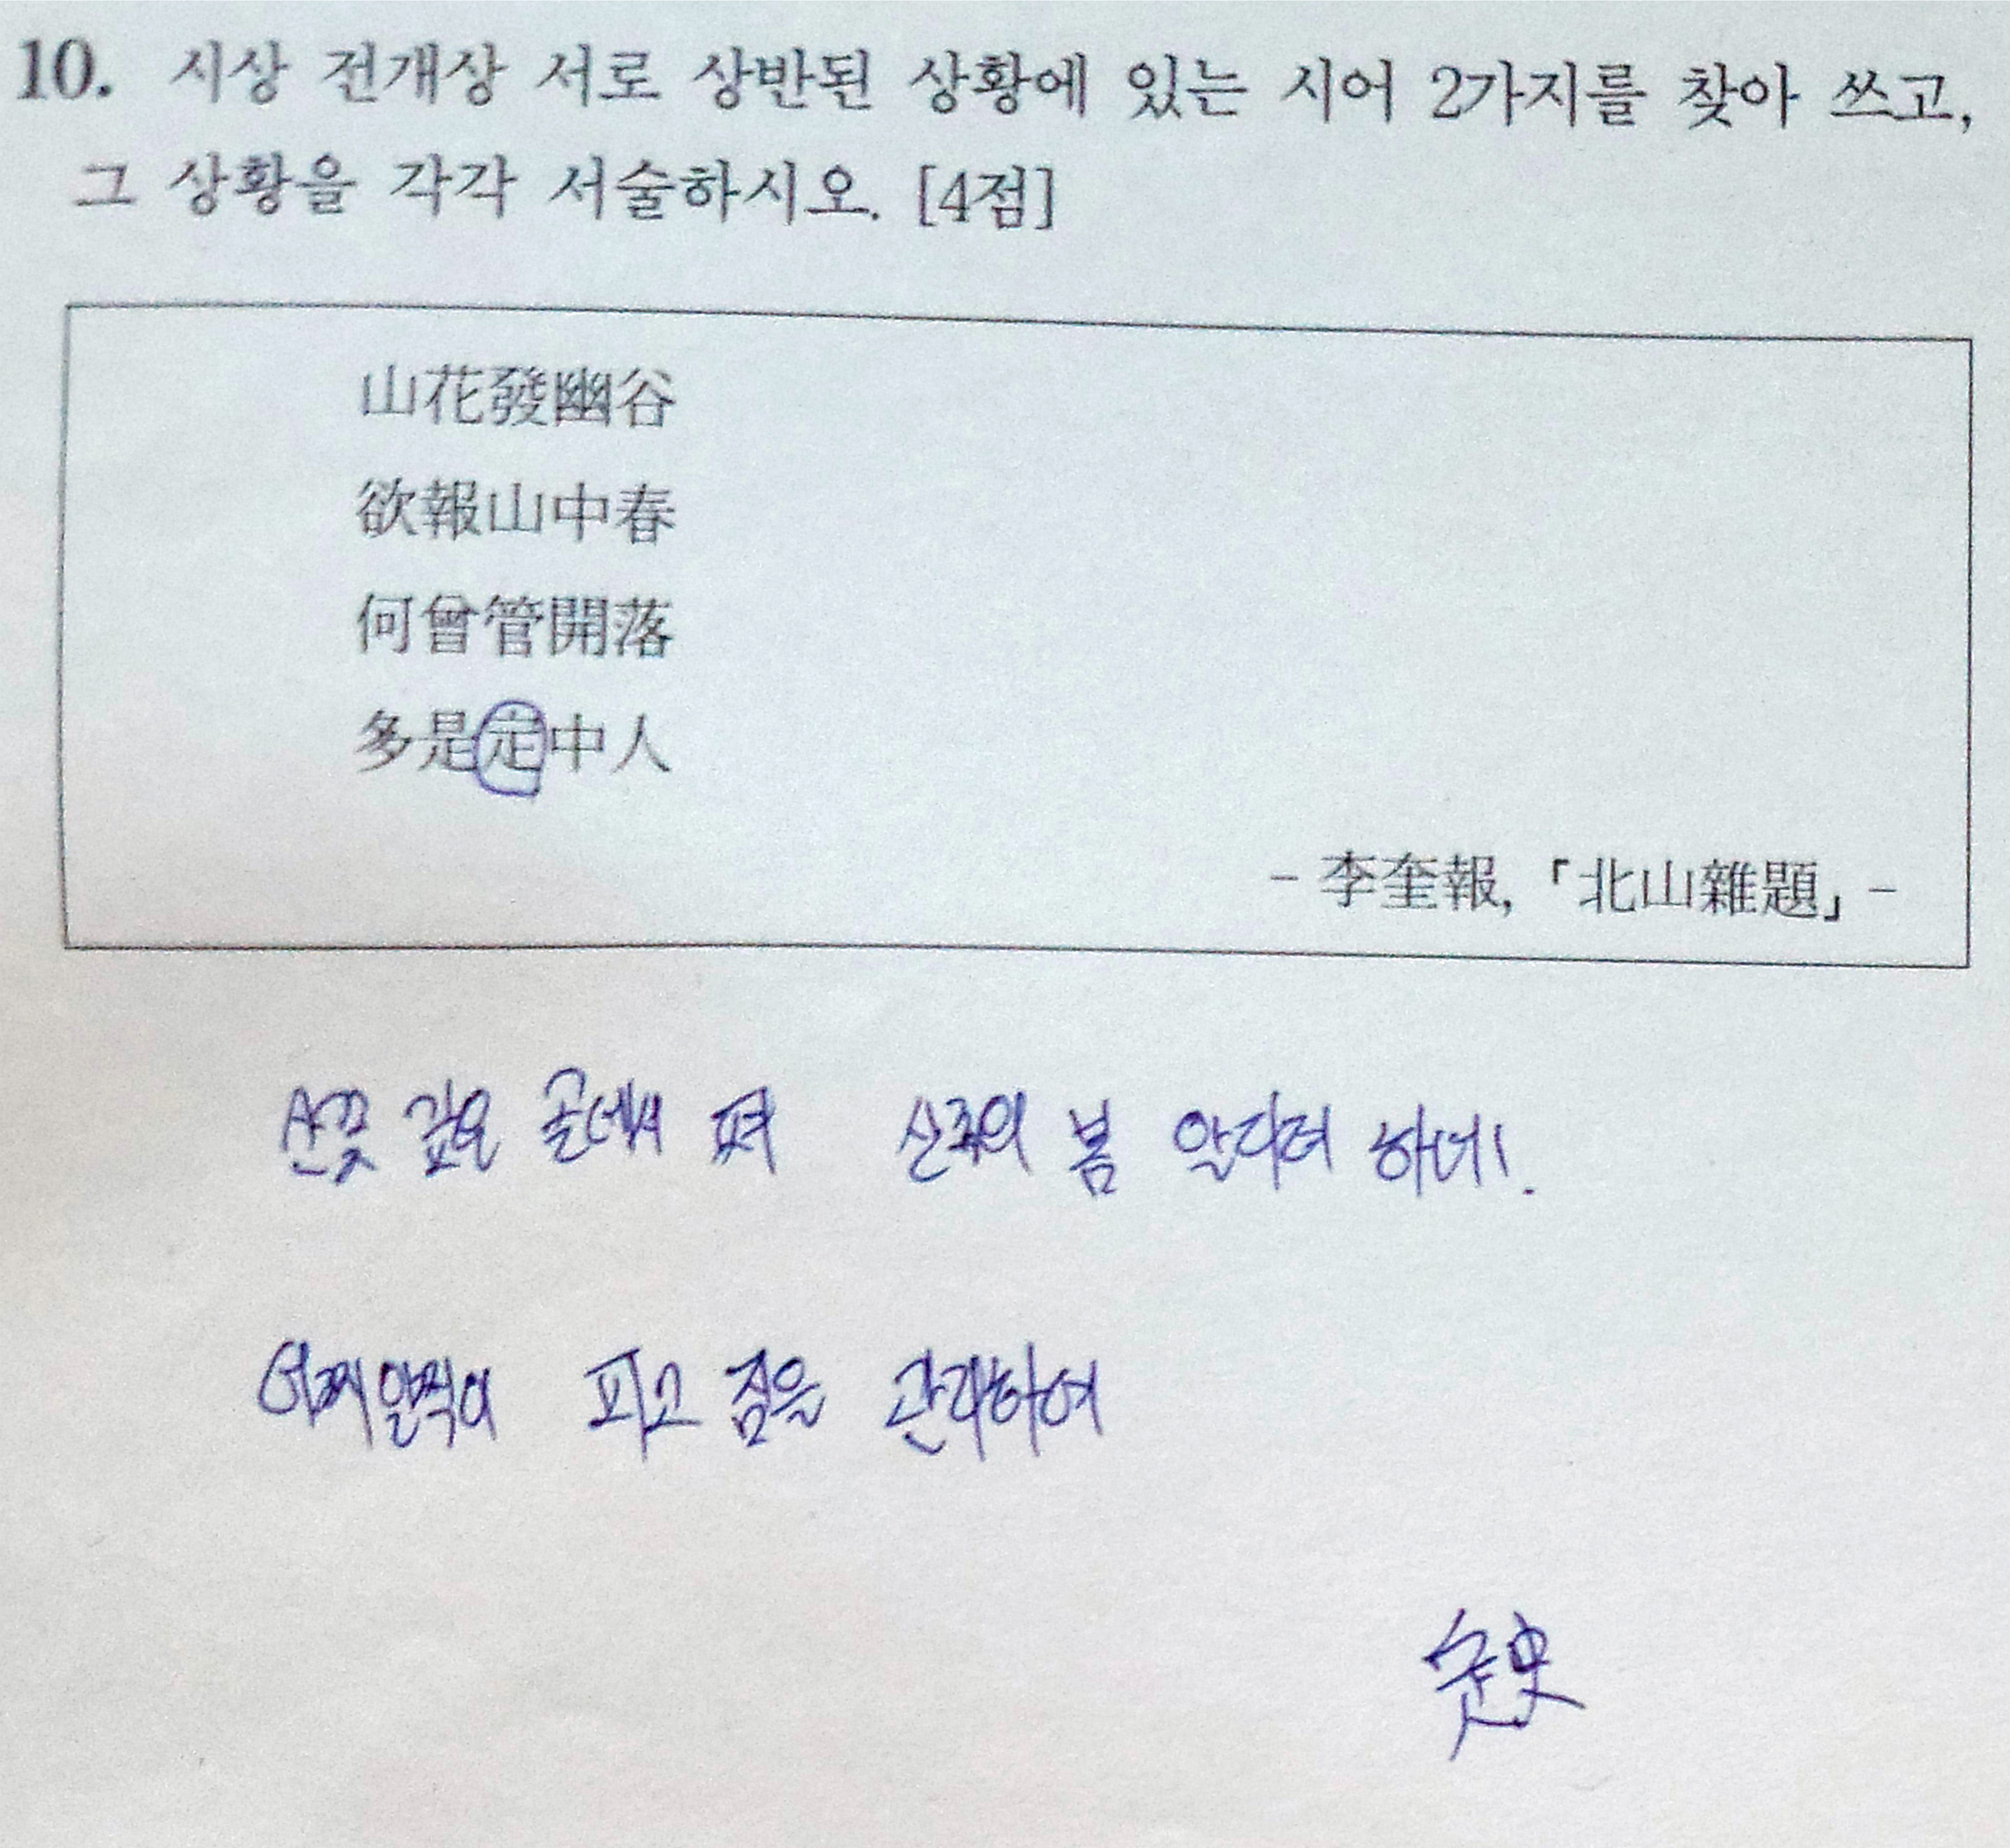 10. 시상 전개상 서로 상반된 상황에 있는 시어 2가지를 찾아 쓰고,
그 상황을 각각 서술하시오. [4점]
山花發幽谷
欲報山中春
何曾管開落
多是定中人
- 李奎報, 「北山雜題」 -
산꽃 깊은 골에서 펴 산중의 봄 알리려 하네!
어찌 일찍이 피고 짐을 관리하여